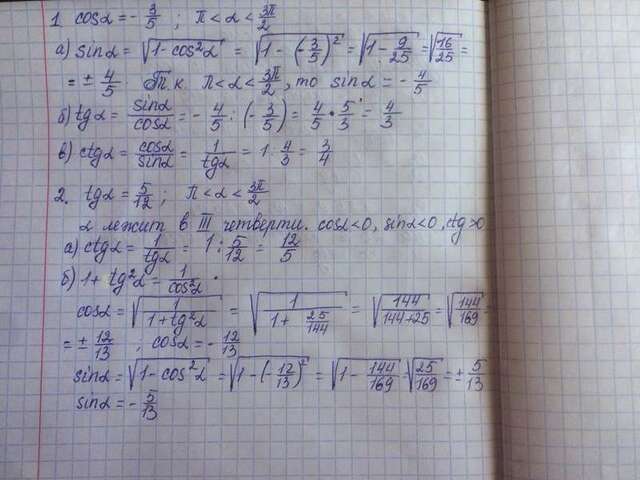 1. cosα = - 3/5 ; π < α < 3π/2
а) sinα = √(1 - cos²α) = √(1 - (-3/5)²) = √(1 - 9/25) = √(16/25) =
= ± 4/5 Т.к. π < α < 3π/2, то sinα = - 4/5
б) tgα = sinα/cosα = - 4/5 : (- 3/5) = 4/5 • 5/3 = 4/3
в) ctgα = cosα/sinα = 1/tgα = 1 : 4/3 = 3/4
2. tgα = 5/12 ; π < α < 3π/2
α лежит в III четверти. cosα<0, sinα<0, ctg>0
а) ctgα = 1/tgα = 1 : 5/12 = 12/5
б) 1 + tg²α = 1/cos²α .
cosα = √(1/(1+tg²α)) = √(1/(1 + 25/144)) = √(144/(144+25)) = √(144/169) =
= ± 12/13 ; cosα = - 12/13
sinα = √(1 - cos²α) = √(1 - (-12/13)²) = √(1 - 144/169) = √(25/169) = ± 5/13
sinα = - 5/13